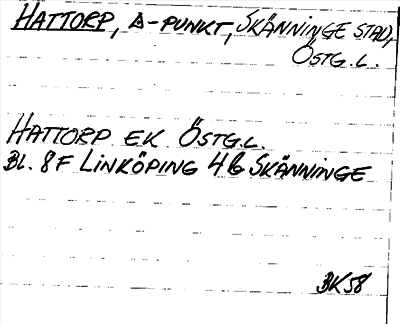 HATTORP, Δ-PUNKT, SKÄNNINGE STAD,
ÖSTG.L.
HATTORP EK ÖSTG.L.
BL. 8F LINKÖPING 4b SKÄNNINGE
BK58